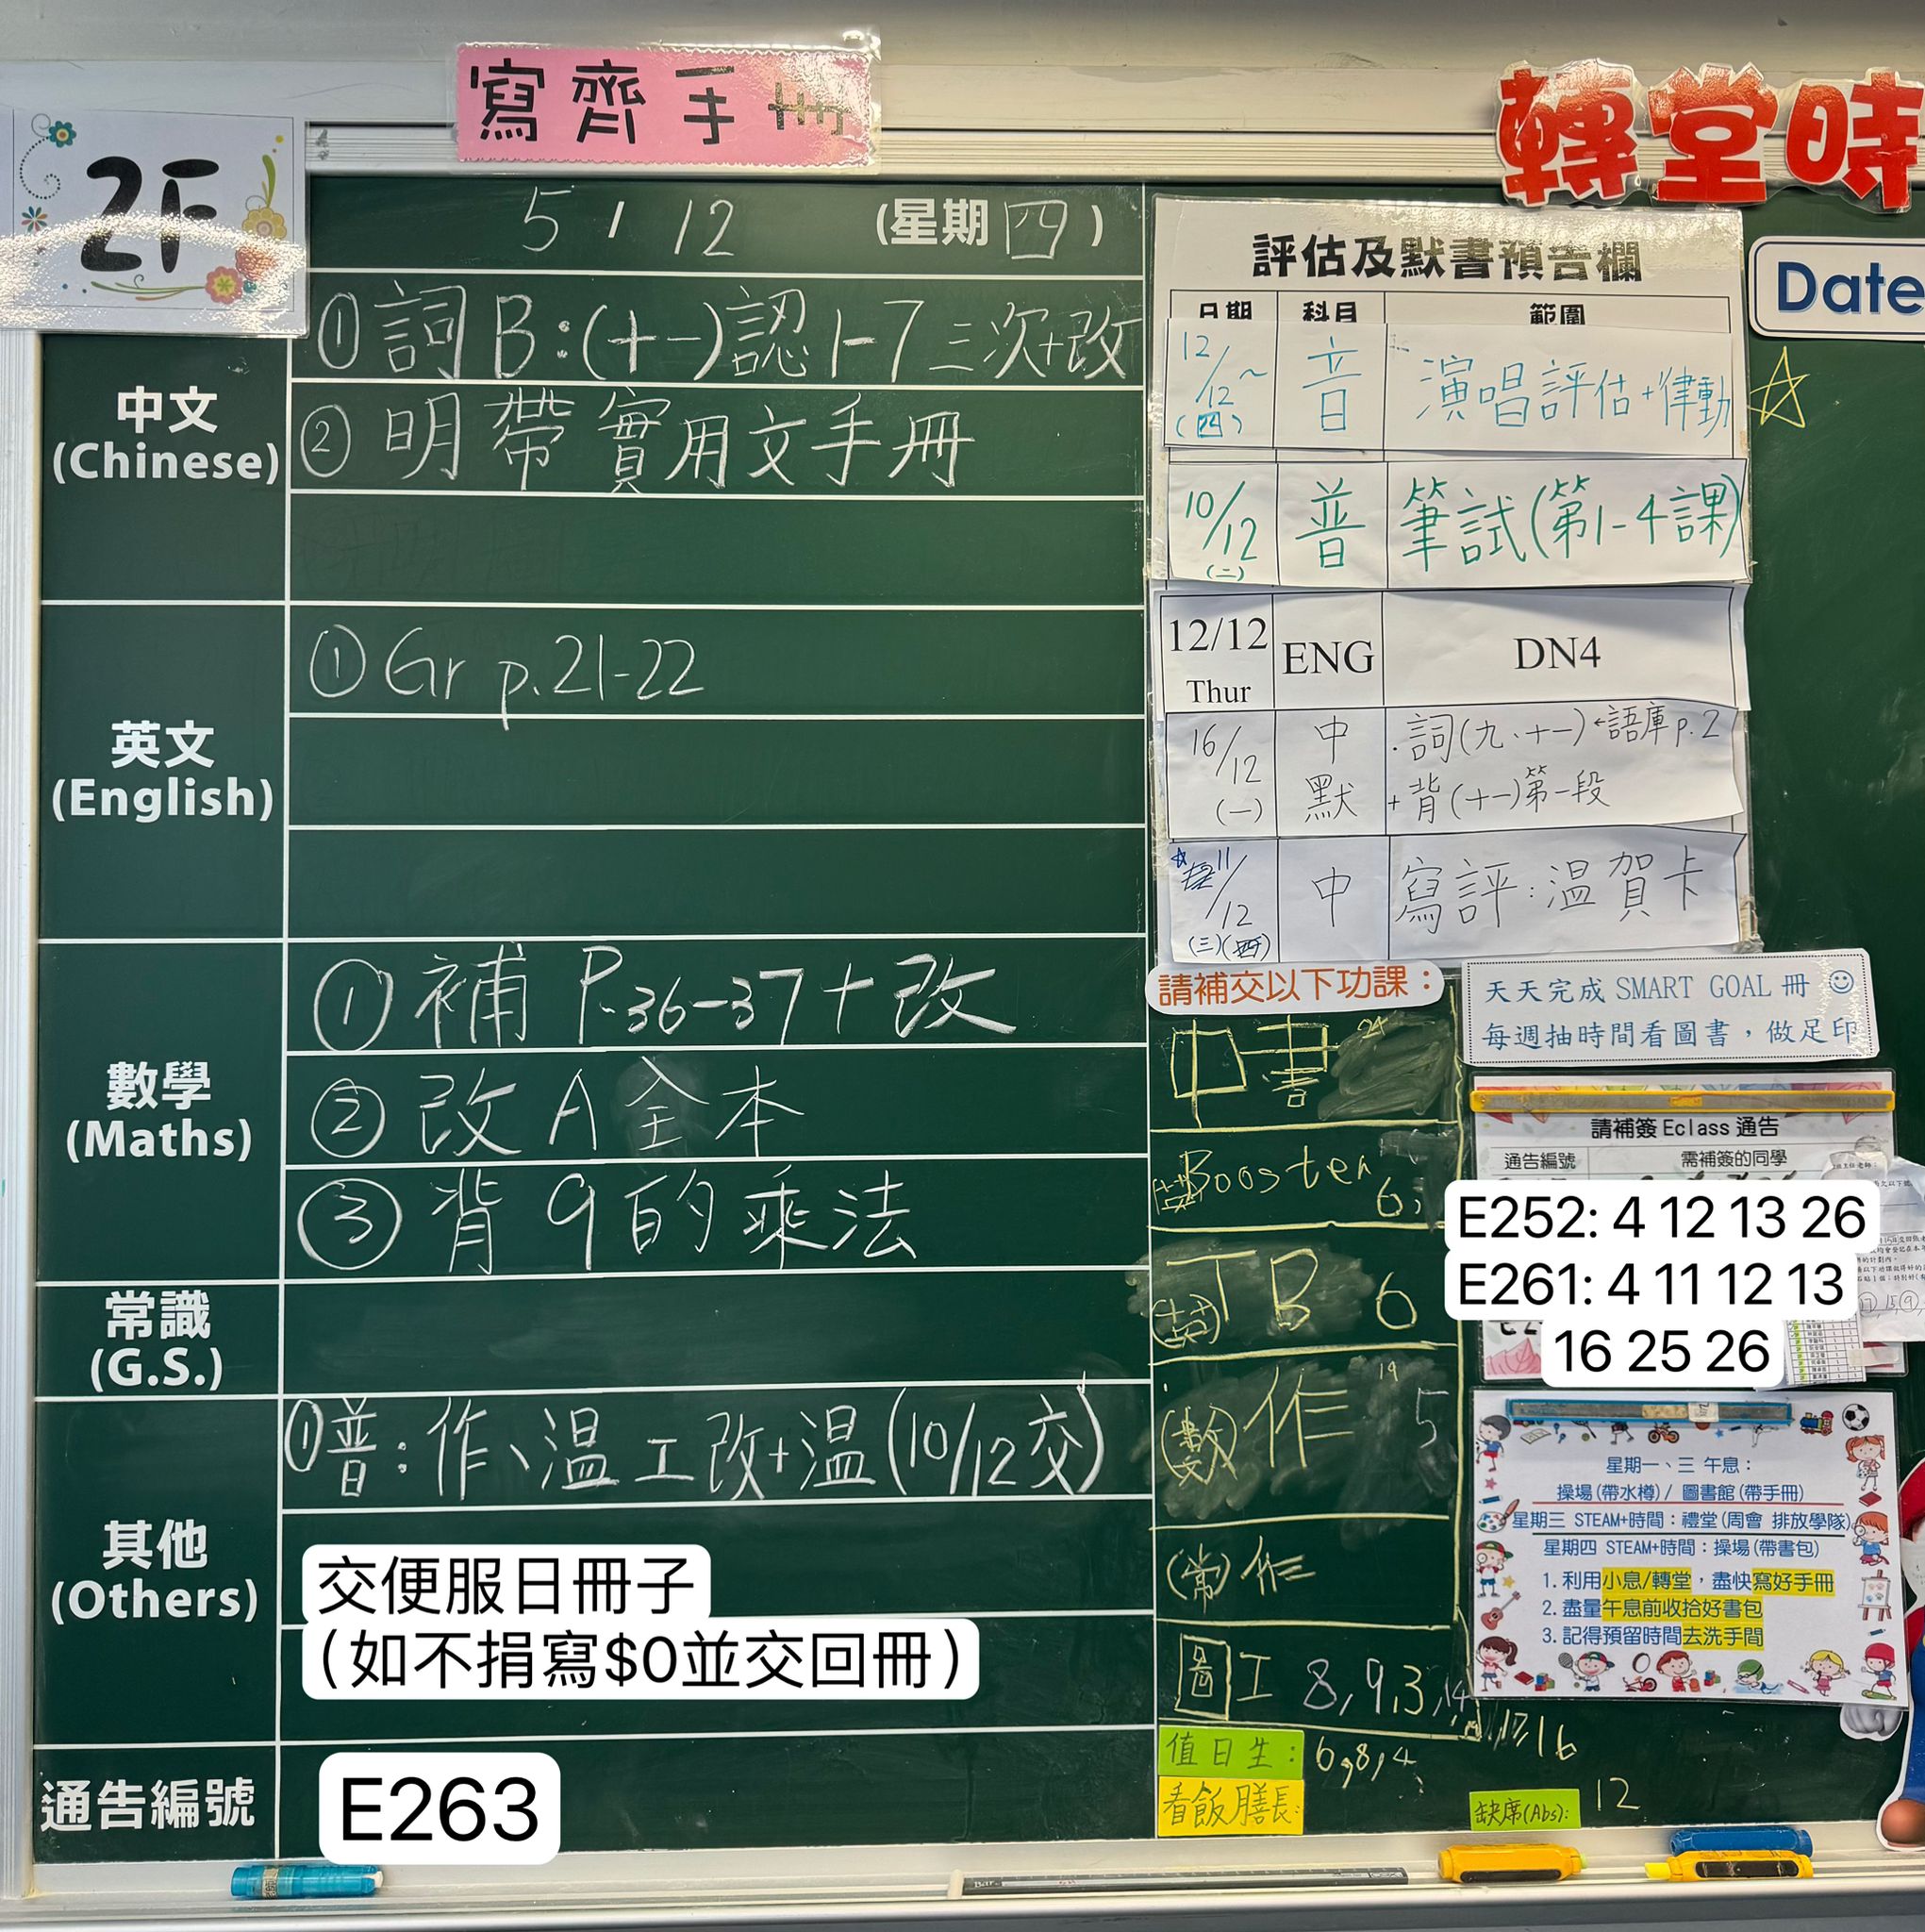 寫齊手冊
轉堂時
2F
5 / 12 (星期四)
中文
(Chinese)
①詞B:(十一)認1-7三次+改
②明帶實用文手冊
英文
(English)
①Gr p.21-22
數學
(Maths)
①補 P.36-37+改
②改A全本
③背9的乘法
常識
(G.S.)
其他
(Others)
①普:作、溫工改+溫(10/12交)
交便服日冊子
(如不捐寫$0並交回冊)
通告編號
E263
評估及默書預告欄
日期 科目 範圍
12/12~(四) 音 演唱評估+律動
10/12(二) 普 筆試(第1-4課)
12/12 Thur ENG DN4
16/12(一) 中默 ·詞(九、十一)←語庫p.2
+背(十一)第一段
11/12(三) 中 寫評:溫賀卡
Date
請補交以下功課:
中書 24
(英)Booster 6,
(英)TB 6
(數)作 19 5
(常)作
圖工 8,9,3,14,17,16
值日生: 6,8,4
看飯膳長:
缺席(Abs): 12
天天完成 SMART GOAL 冊
每週抽時間看圖書,做足印
請補簽 Eclass 通告
通告編號 需補簽的同學
E252: 4 12 13 26
E261: 4 11 12 13
16 25 26
星期一、三 午息:
操場(帶水樽)/ 圖書館(帶手冊)
星期三 STEAM+時間:禮堂(周會 排放學隊)
星期四 STEAM+時間:操場(帶書包)
1. 利用小息/轉堂,盡快寫好手冊
2. 盡量午息前收拾好書包
3. 記得預留時間去洗手間